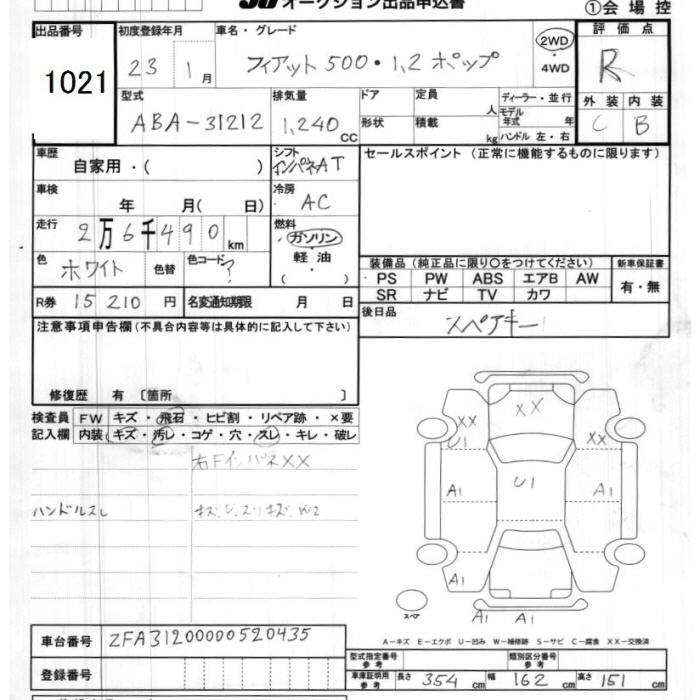 オークション出品申込書
①会場控
出品番号
1021
初度登録年月
23 1月
車名・グレード
フィアット500・1,2 ポップ
2WD
・
4WD
評価点
R
外装 内装
C B
型式
ABA-31212
排気量
1,240 CC
ドア
形状
定員 人
積載 kg
ディーラー・並行
モデル年式 年
ハンドル 左・右
車歴
自家用・( )
シフト
インパネAT
セールスポイント (正常に機能するものに限ります)
車検
年 月( 日)
冷房
AC
走行
2万6千490 km
燃料
ガソリン
・
軽油
( )
色
ホワイト
色替
色コード
?
装備品 (純正品に限り○をつけてください)
・PS PW ABS エアB AW
SR ナビ TV カワ
新車保証書
有・無
R券 15210円
名変通知期限 月 日
後日品
スペアキー
注意事項申告欄(不具合内容等は具体的に記入して下さい)
修復歴 有 〔箇所 〕
検査員 FW キズ・飛石・ヒビ割・リペア跡・×要
記入欄 内装 キズ・汚レ・コゲ・穴・スレ・キレ・破レ
右Fインパネ XX
ハンドルスレ
XX
XX
U1
XX
A1
U1
A1
A1
A1
A1
スペア
A-キズ E-エクボ U-凹み W-補修跡 S-サビ C-腐食 XX-交換済
車台番号 ZFA31200000520435
登録番号
型式指定番号 参考
類別区分番号 参考
車庫証明用 参考 長さ 354 cm 幅 162 cm 高さ 151 cm